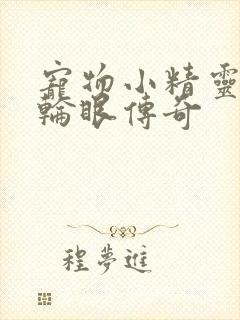 寵物小精靈
輪眼傳奇
程夢進